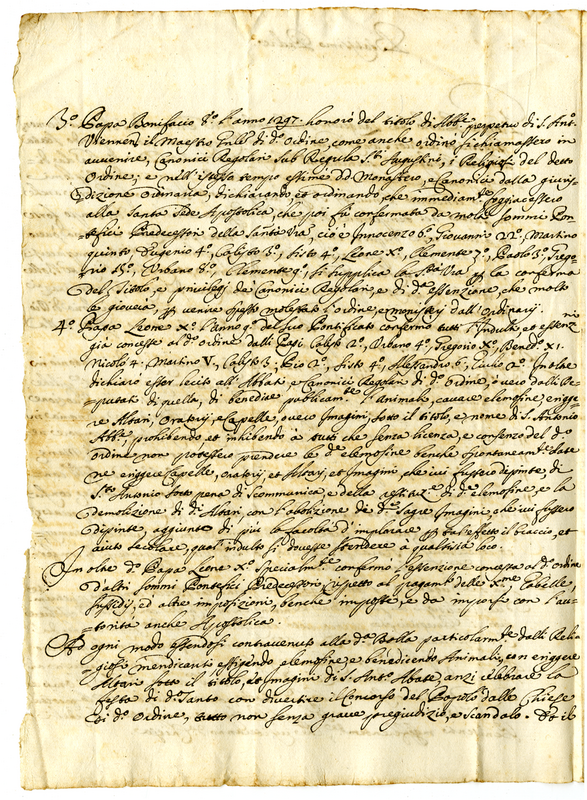 3.º Papa Bonifacio 8.º l'anno 1297. honorò del titolo di Abb.e perpetuo di S. Ant.º
Viennen. il Maestro Gnlē di d.º Ordine, come anche ordinò si chiamassero in
avvenire, Canonici Regolari sub Regula S.ti Augustini, i Religiosi del detto
Ordine; e nell'istesso tempo essime d.º Monastero, e Canonici dalla giuris
dizione Ordinaria, dichiarando, et ordinando che immediam.te soggiacessero
alla Santa Sede Apostolica, che poi fù confermata da molti sommi Pon
tefici Predecessori della Santità Vra, cioè Innocenzo 6.º Giovanni 22.º Martino
quinto, Eugenio 4.º, Calisto 3.º, Sisto 4.º, Leone X.º, Clemente 7.º, Paolo 3.º Grego
rio 13.º, Urbano 8.º, Clemente 9.º, si supplica la S.tà Vra p la conferma
del Titolo, e privilegi de Canonici Regolari, e di d.ª essenzione che molto
le gioverà, p venire spesso molestati l'ordine, e monasterj dall'Ordinarij.
4.º Papa Leone X.º l'anno 9.º del suo Pontificato confermò tutti l'Indulti, et essenzni
già concesse al d.º Ordine dalli Papi Calisto 2.º, Urbano 4.º, Gregorio X.º, Bened.º XI.
Nicolò 4.º Martino V., Calisto 3.º, Pio 2.º, Sisto 4.º, Alessandro 6.º, Giulio 2.º. In oltre
dichiarò esser lecito all'Abbati, e Canonici Regolari di d.º Ordine, ò vero dalli De
=putati di quella, di benedire publicam.te l'Animali, cavare elemosine, erigge
re Altari, Oratorij, e Capelle, overo Imagini, sotto il titolo, e nome di S. Antonio
Abb.e, prohibendo et inhibendo à tutti che senza licenza, e consenzo del d.º
ordine non potessero prendere le d.e elemosine benche spontaneam.te date
ne eriggere Capelle, Oratorij, et Altari, et Imagini che ivi fussero dipinte, di
S.to Antonio sotto pena di Scommunica, e della restituz.e di d.e elemosine, e la
demolizione di d.i Altari con l'abolizione de d.e Sagre Imagini, che ivi fussero
dipinte, aggiunta di più la facoltà d'implorare p tal'effetto il braccio, et
aiuto secolare, qual'indulto si dovesse stendere à qualsisia loco.
In oltre d.º Papa Leone X.º specialm.te confermò l'essenzione concessa al d.º ordine
d'altri sommi Pontefici Predecessori, rispetto al pagam.to delle X.me Gabelle,
sussidij, ed altre imposizioni, benche imposte, e da imporsi con l'au
=torità anche Apostolica.
Ad ogni modo essendosi contravenuto alla d.ª Bolla particolarm.te dalli Reli
=giosi mendicanti esigendo elemosine, e benedicendo Animali, con eriggere
Altari sotto il titolo, et Imagini di S. Ant.º Abate, anzi celebrare la
festa di d.º Santo con divertire il Concorso del Popolo dalle Chiese
di d.º Ordine, tutto non senza grave pregiudizio, e scandalo. Et il